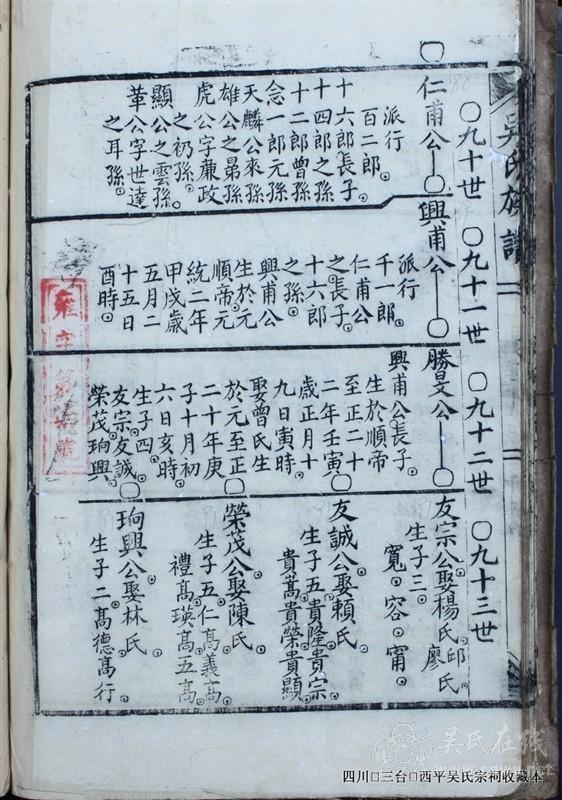 吳氏族譜
〇九十世
〇九十一世
〇九十二世
〇九十三世
〇仁甫公
派行
百二郎。
十六郎長子
十四郎之孫
十二郎曾孫
念一郎元孫
天麟公來孫
雄公之晜孫
虎公字蔗政
之礽孫。
顯公之雲孫。
革公字世達
之耳孫。
〇興甫公
派行
千一郎。
仁甫公
之長子。
十六郎
之孫。
興甫公
生於元
順帝元
統二年
甲戌歲
五月二
十五日
酉時。
〇勝旻公
興甫公長子。
生於順帝
至正二十
二年壬寅
歲正月十
九日寅時。
娶曾氏生
於元至正
二十年庚
子十月初
六日亥時。
生子四。
友宗。友誠
榮茂。珦興
〇友宗公娶楊氏。邱氏。廖氏
生子三。寬。容。甯。
友誠公娶賴氏。
生子五。貴隆貴宗
貴嵩貴榮貴顯
榮茂公娶陳氏。
生子五。仁高義高
禮高瑛高五高。
〇珦興公娶林氏。
生子二高德高行。
吴氏在线
四川□三台□西平吴氏宗祠收藏本